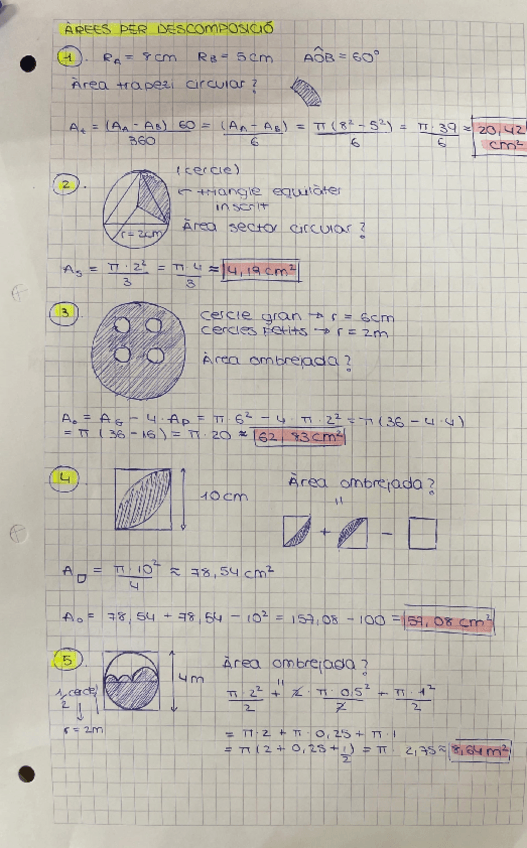 ÀREES PER DESCOMPOSICIÓ
1. RA = 8cm RB = 5cm AÔB = 60°
Àrea trapezi circular?
At = (AA - AB) 60 / 360 = (AA - AB) / 6 = π(8² - 5²) / 6 = π · 39 / 6 ≈ 20,42 cm²
2. (cercle)
← triangle equilàter
inscrit
r = 2cm
Àrea sector circular?
As = π · 2² / 3 = π 4 / 3 ≈ 4,19 cm²
3 cercle gran → r = 6cm
cercles petits → r = 2m
Àrea ombrejada?
Ao = AG - 4 · Ap = π 6² - 4 · π · 2² = π(36 - 4·4)
= π (36 - 16) = π · 20 ≈ 62,83 cm²
4 10cm Àrea ombrejada?
=
+ -
A = π · 10² / 4 ≈ 78,54 cm²
Ao = 78,54 + 78,54 - 10² = 157,08 - 100 = 57,08 cm²
5 4m Àrea ombrejada?
=
1/2 cercle
↓
r = 2m
π · 2² / 2 + 2 · π · 0,5² / 2 + π · 1² / 2
= π · 2 + π · 0,25 + π · 1
= π (2 + 0,25 + 1/2) = π · 2,75 ≈ 8,64 m²